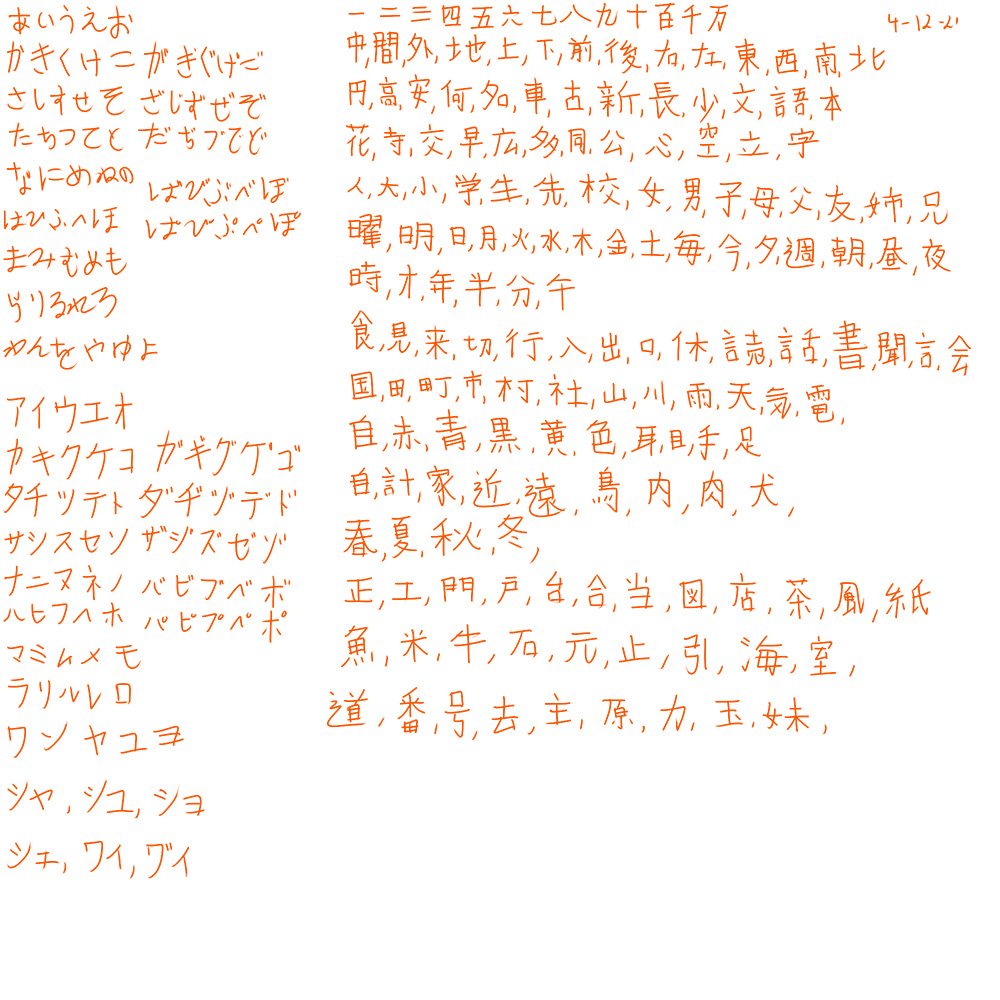 あいうえお
かきくけこ がぎぐげご
さしすせそ ざじずぜぞ
たちつてと だぢづでど
なにぬねの ばびぶべぼ
はひふへほ ぱぴぷぺぽ
まみむめも
らりるれろ
わんをやゆよ
アイウエオ
カキクケコ ガギグゲゴ
タチツテト ダヂヅデド
サシスセソ ザジズゼゾ
ナニヌネノ バビブベボ
ハヒフヘホ パピプペポ
マミムメモ
ラリルレロ
ワンヤユヨ
シャ, シュ, ショ
シェ, ウィ, グイ
一二三四五六七八九十百千万 4-12-21
中,間,外,地,上,下,前,後,右,左,東,西,南,北
円,高,安,何,名,車,古,新,長,少,文,語,本
花,寺,交,早,広,多,同,公,心,空,立,字
人,大,小,学,生,先,校,女,男,子,母,父,友,姉,兄
曜,明,日,月,火,水,木,金,土,毎,今,夕,週,朝,昼,夜
時,才,年,半,分,午
食,見,来,切,行,入,出,口,休,誌,話,書,聞,言,会
国,田,町,市,村,社,山,川,雨,天,気,電,
白,赤,青,黒,黄,色,耳,目,手,足
自,計,家,近,遠,鳥,内,肉,犬,
春,夏,秋,冬,
正,工,門,戸,台,合,当,図,店,茶,風,紙
魚,米,牛,石,元,止,引,海,室,
道,番,号,去,主,原,力,玉,妹,